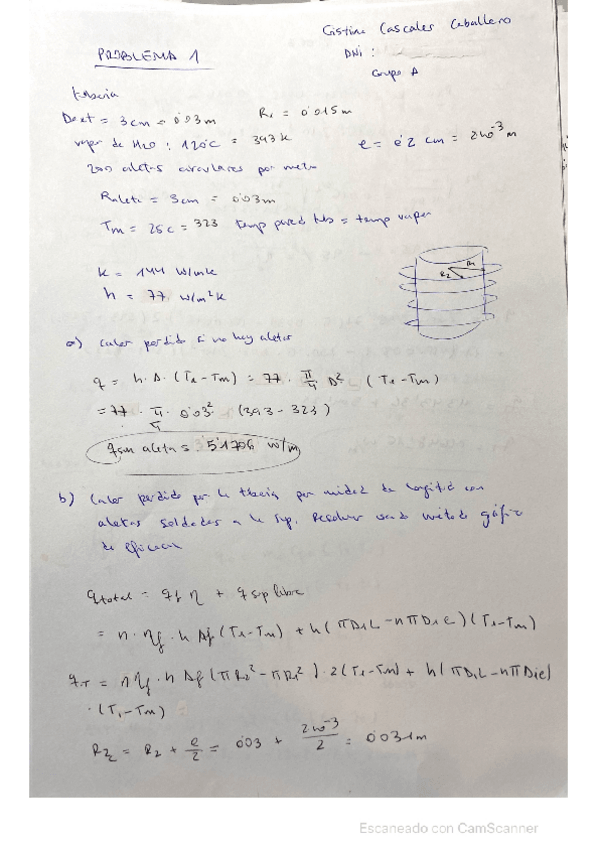 Cristina Cascales Caballero
PROBLEMA 1
DNI :
Grupo A
tubería
Dext = 3 cm = 0'03 m R1 = 0'015 m
vapor de H2O : 120°C = 393 K e = 0'2 cm = 2·10⁻³ m
200 aletas circulares por metro
Raleta = 3cm = 0'03m
Tm = 25c = 323 temp pared tubo = temp vapor
k = 144 W/mk
h = 77 W/m²k
R1
R2
a) calor perdido si no hay aletas
q = h · A · (T1 - Tm) = 77 · π/4 D² (T1 - Tm)
= 77 · π/4 · 0'03² (393 - 323)
qsin aletas = 5'1706 W/m
b) Calor perdido por la tubería por unidad de longitud con
aletas soldadas a la sup. Resolver usando método gráfico
de eficacia
qtotal = qf η + q sup libre
= n · ηf · h Af (T1 - Tm) + h (πD1L - nπD1e) (T1 - Tm)
qT = n ηf · h Af (πR2² - πR1²) · 2 (T1 - Tm) + h (πD1L - nπD1e)
· (T1 - Tm)
R2c = R2 + e/2 = 0'03 + 2·10⁻³/2 = 0'031m
Escaneado con CamScanner